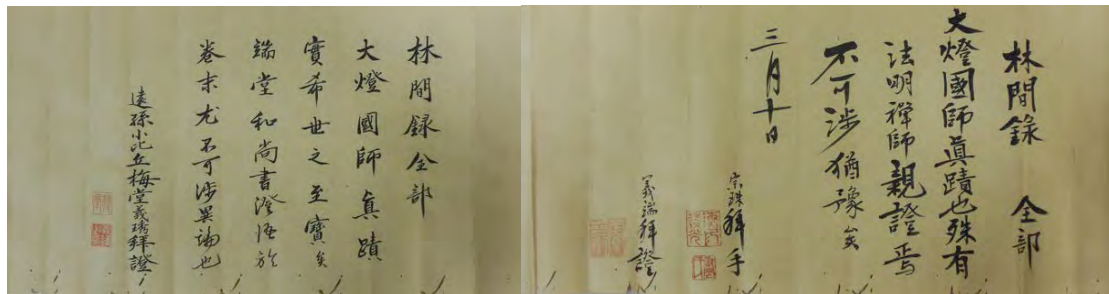 林間錄 全部
大燈國師眞蹟也殊有
法明禪師親證焉
不可涉猶豫矣
三月十日
宗珠拜手
義瑞拜證
林間録 全部
大燈國師真蹟
實希世之至寶矣
端堂和尚書證語於
卷末尤不可涉異論也
遠孫小比丘梅堂義琇拜證